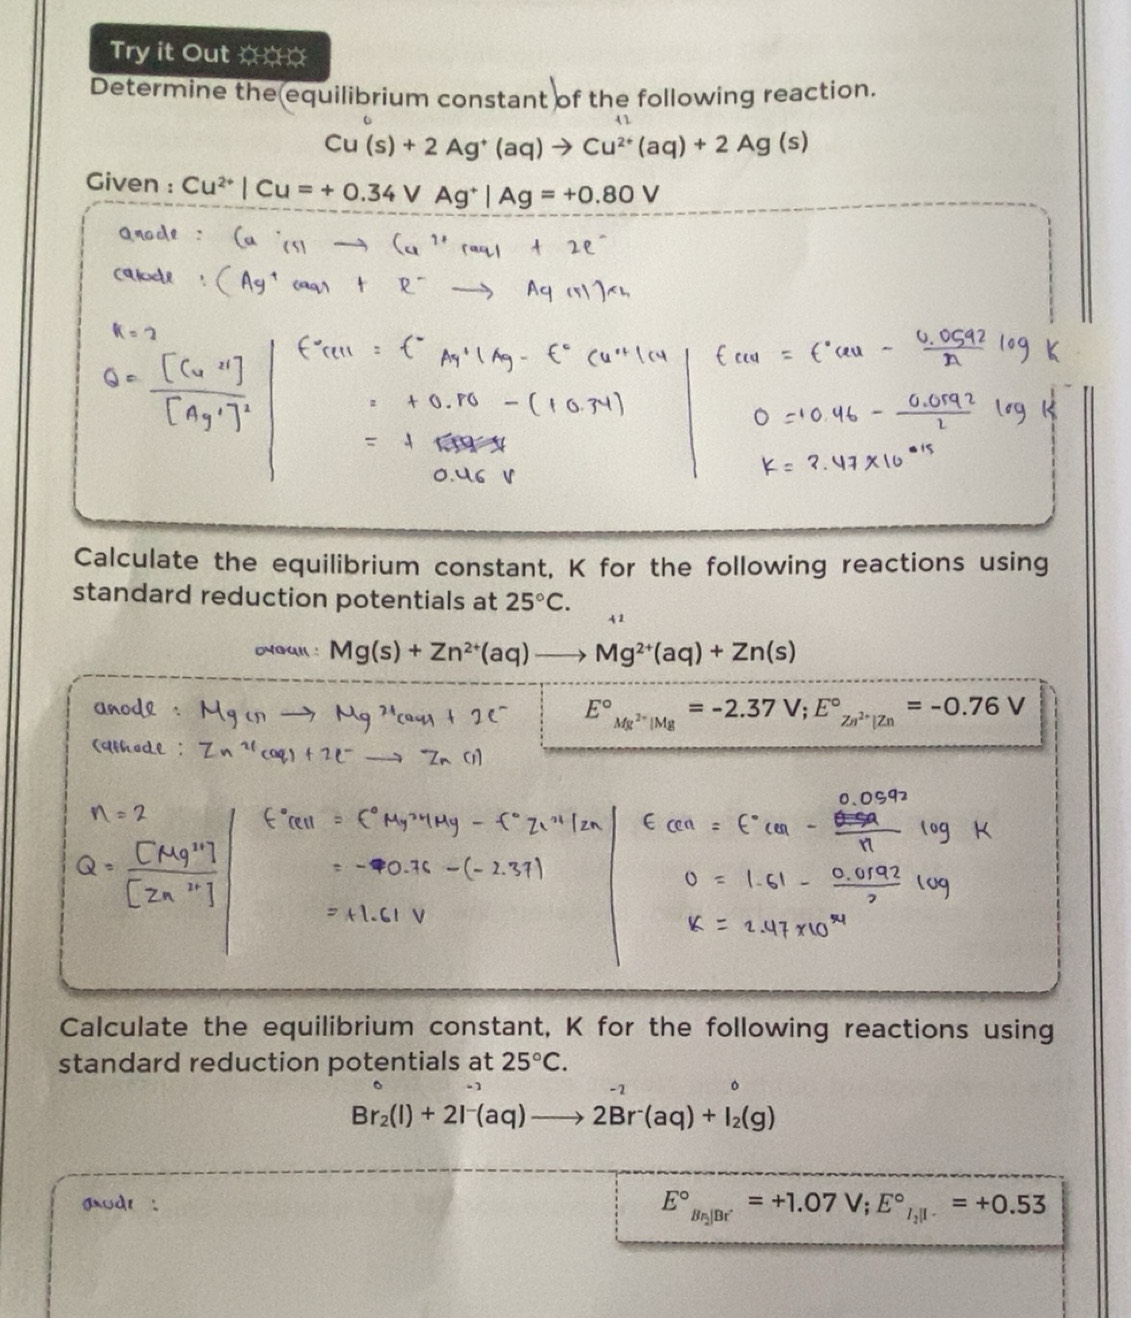 Try it Out
Determine the equilibrium constant of the following reaction.
0 +2
Cu (s) + 2 Ag⁺ (aq) → Cu²⁺ (aq) + 2 Ag (s)
Given : Cu²⁺ | Cu = + 0.34 V Ag⁺ | Ag = +0.80 V
anode : Cu (s) → Cu²⁺ (aq) + 2e⁻
: (Ag⁺ (aq) + e⁻ → Ag (s)
Q = [Cu²⁺] / [Ag⁺]²
E°cell = E° Ag⁺|Ag - E° Cu²⁺|Cu
= +0.80 - (+0.34)
= +
0.46 V
E cell = E°cell - 0.0592/n log K
0 = +0.46 - 0.0592/2 log K
Calculate the equilibrium constant, K for the following reactions using
standard reduction potentials at 25°C.
+2
Mg(s) + Zn²⁺(aq) ⟶ Mg²⁺(aq) + Zn(s)
E°Mg²⁺|Mg = -2.37 V; E°Zn²⁺|Zn = -0.76 V
anode : Mg (s) → Mg²⁺ (aq) + 2e⁻
cathode : Zn²⁺ (aq) + 2e⁻ → Zn (s)
n = 2
Q = [Mg²⁺] / [Zn²⁺]
E°cell = E° Mg²⁺|Mg - E° Zn²⁺|Zn
= -0.76 - (-2.37)
= +1.61 V
E cell = E°cell - 0.0592/n log K
0 = 1.61 - 0.0592/2 log
K = 2.47 x 10⁵⁴
Calculate the equilibrium constant, K for the following reactions using
standard reduction potentials at 25°C.
Br₂(l) + 2I⁻(aq) ⟶ 2Br⁻(aq) + I₂(g)
E°Br₂|Br⁻ = +1.07 V; E°I₂|I⁻ = +0.53
anode :